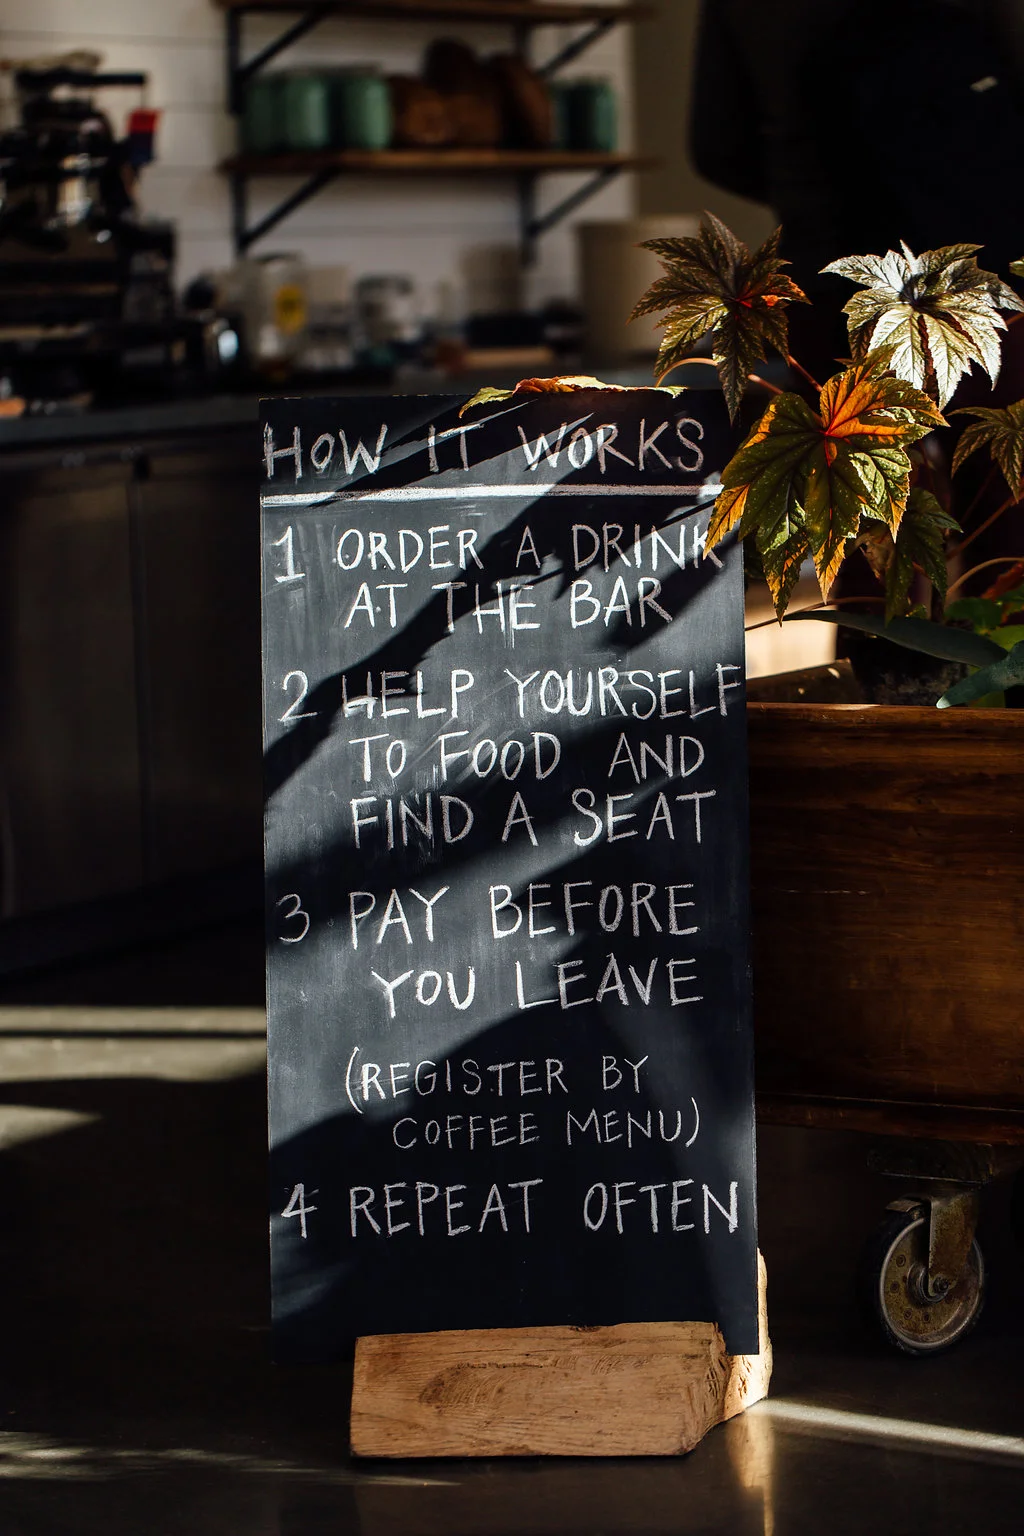 HOW IT WORKS
1 ORDER A DRINK
AT THE BAR
2 HELP YOURSELF
TO FOOD AND
FIND A SEAT
3 PAY BEFORE
YOU LEAVE
(REGISTER BY
COFFEE MENU)
4 REPEAT OFTEN